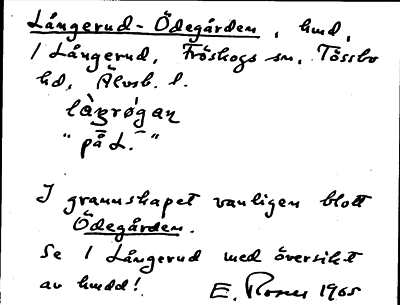 Långerud-Ödegården, hmd,
1 Långerud, Fröskogs sn, Tössbo
hd, Älvsb. l.
"på L."
I grannskapet vanligen blott
Ödegården.
Se 1 Långerud med översikt
av hmdd! E. Rosen 1965